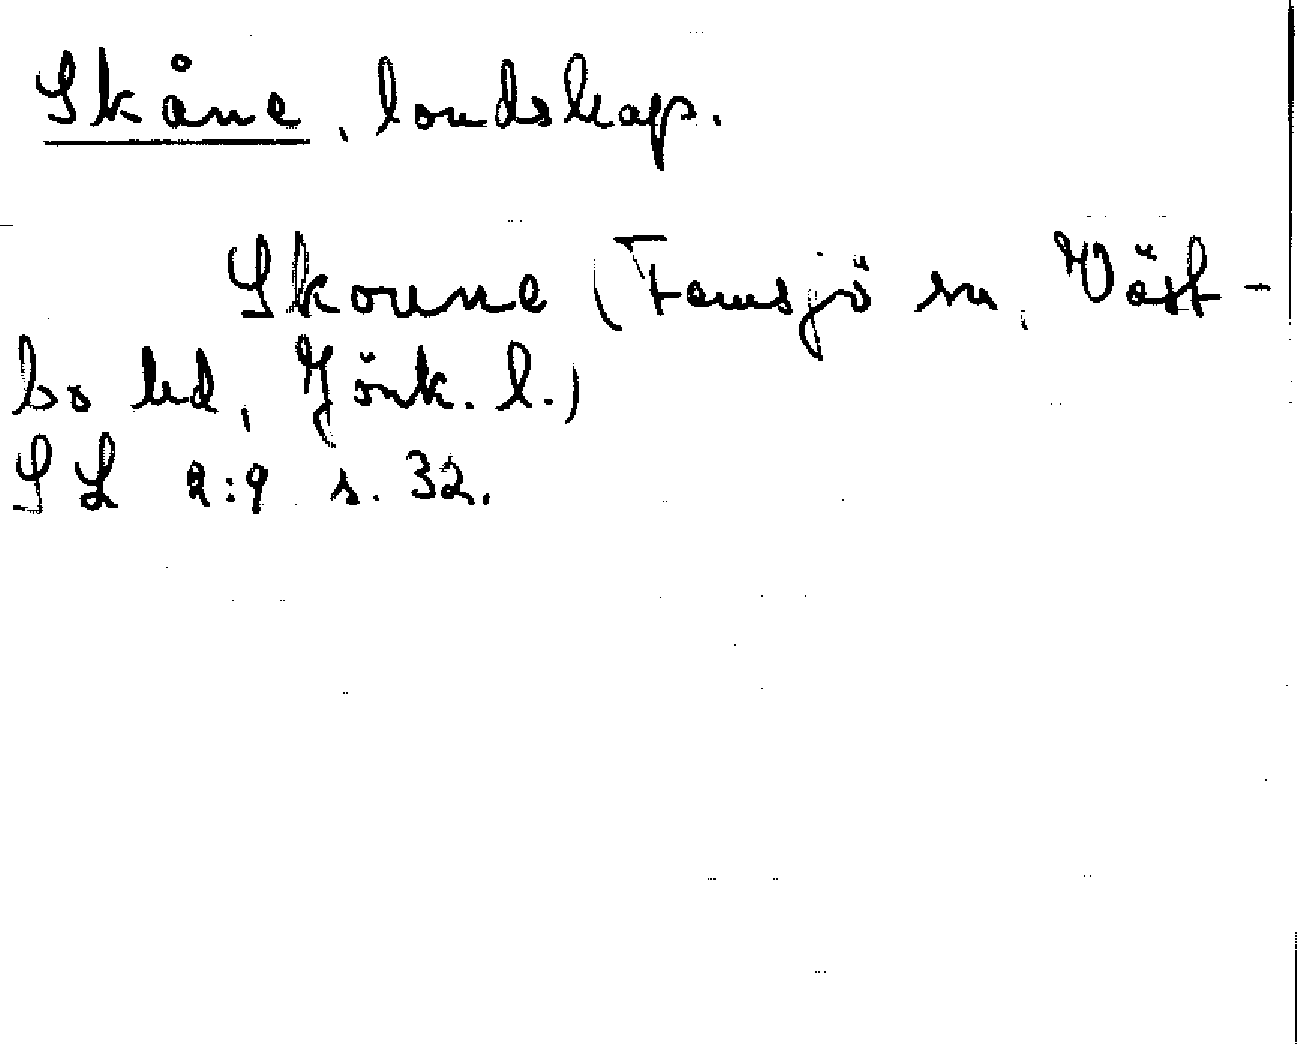 Skåne, landskap.
Skoune (Femsjö sn, Väst-
bo hd, Jönk. l.)
SL 2:9 s. 32.